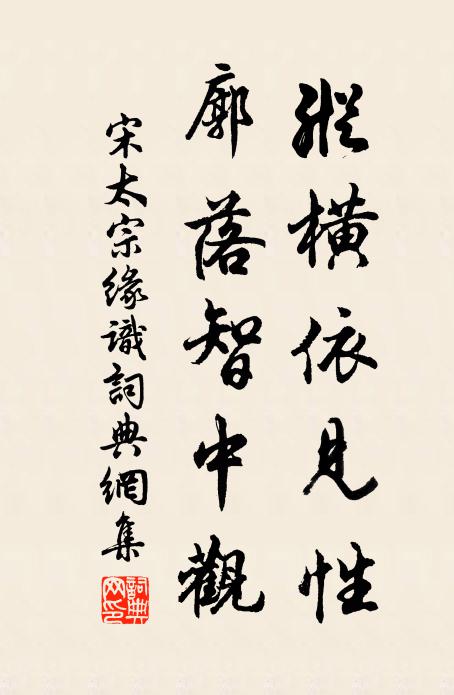 縱橫依見性
廓落智中觀
宋太宗緣識詞典網集
詞典網印